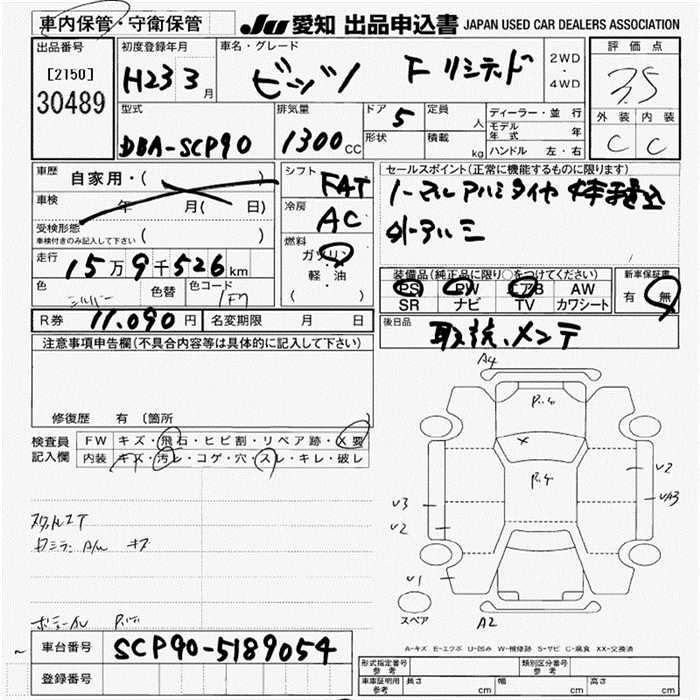 車内保管・守衛保管
JU 愛知 出品申込書 JAPAN USED CAR DEALERS ASSOCIATION
出品番号
[2150]
30489
初度登録年月
H23 3月
車名・グレード
F リミテッド
2WD
・
4WD
評価点
3.5
外装 内装
C C
型式
DBA-SCP90
排気量
1300cc
ドア
5
形状
定員
人
積載
kg
ディーラー・並行
モデル年式 年
ハンドル 左・右
車歴 自家用・( )
車検 年 月( 日)
受検形態
車検付きのみ記入して下さい ( )
走行 15万9千526km
色 シルバー
色替
色コード 1F7
シフト
FAT
冷房
AC
燃料
ガソリン
軽・油
( )
セールスポイント(正常に機能するものに限ります)
ノーマルアルミタイヤ
外アルミ
装備品(純正品に限り○をつけてください)
PS PW エアB AW
SR ナビ TV カワシート
新車保証書
有 無
R券 11,090円
名変期限 月 日
後日品 取説、メンテ
注意事項申告欄(不具合内容等は具体的に記入して下さい)
修復歴 有 (箇所 )
検査員記入欄
FW キズ・飛石・ヒビ割・リペア跡・X要
内装 キズ・汚レ・コゲ・穴・スレ・キレ・破レ
A4
R.4
X
R.4
V2
V3
V2
V1
A2
スペア
A-キズ E-エクボ U-凹み W-補修跡 S-サビ C-腐食 XX-交換済
車台番号 SCP90-5189054
登録番号
形式指定番号
参考
類別区分番号
参考
車庫証明用
参考
長さ cm
幅 cm
高さ cm